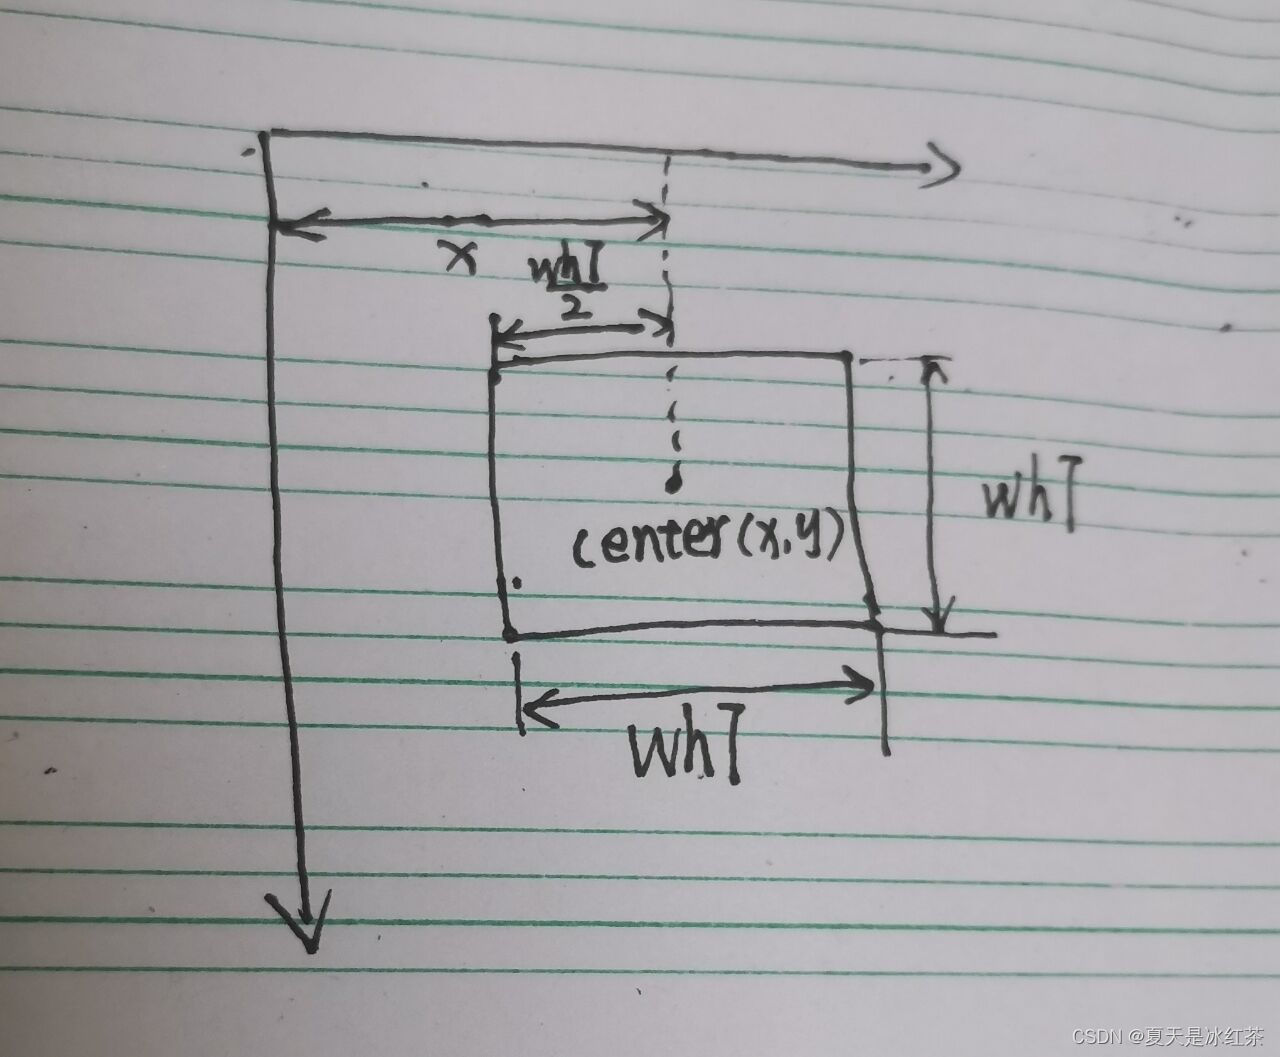 x
whT
2
center(x,y)
whT
whT
CSDN @夏天是冰红茶